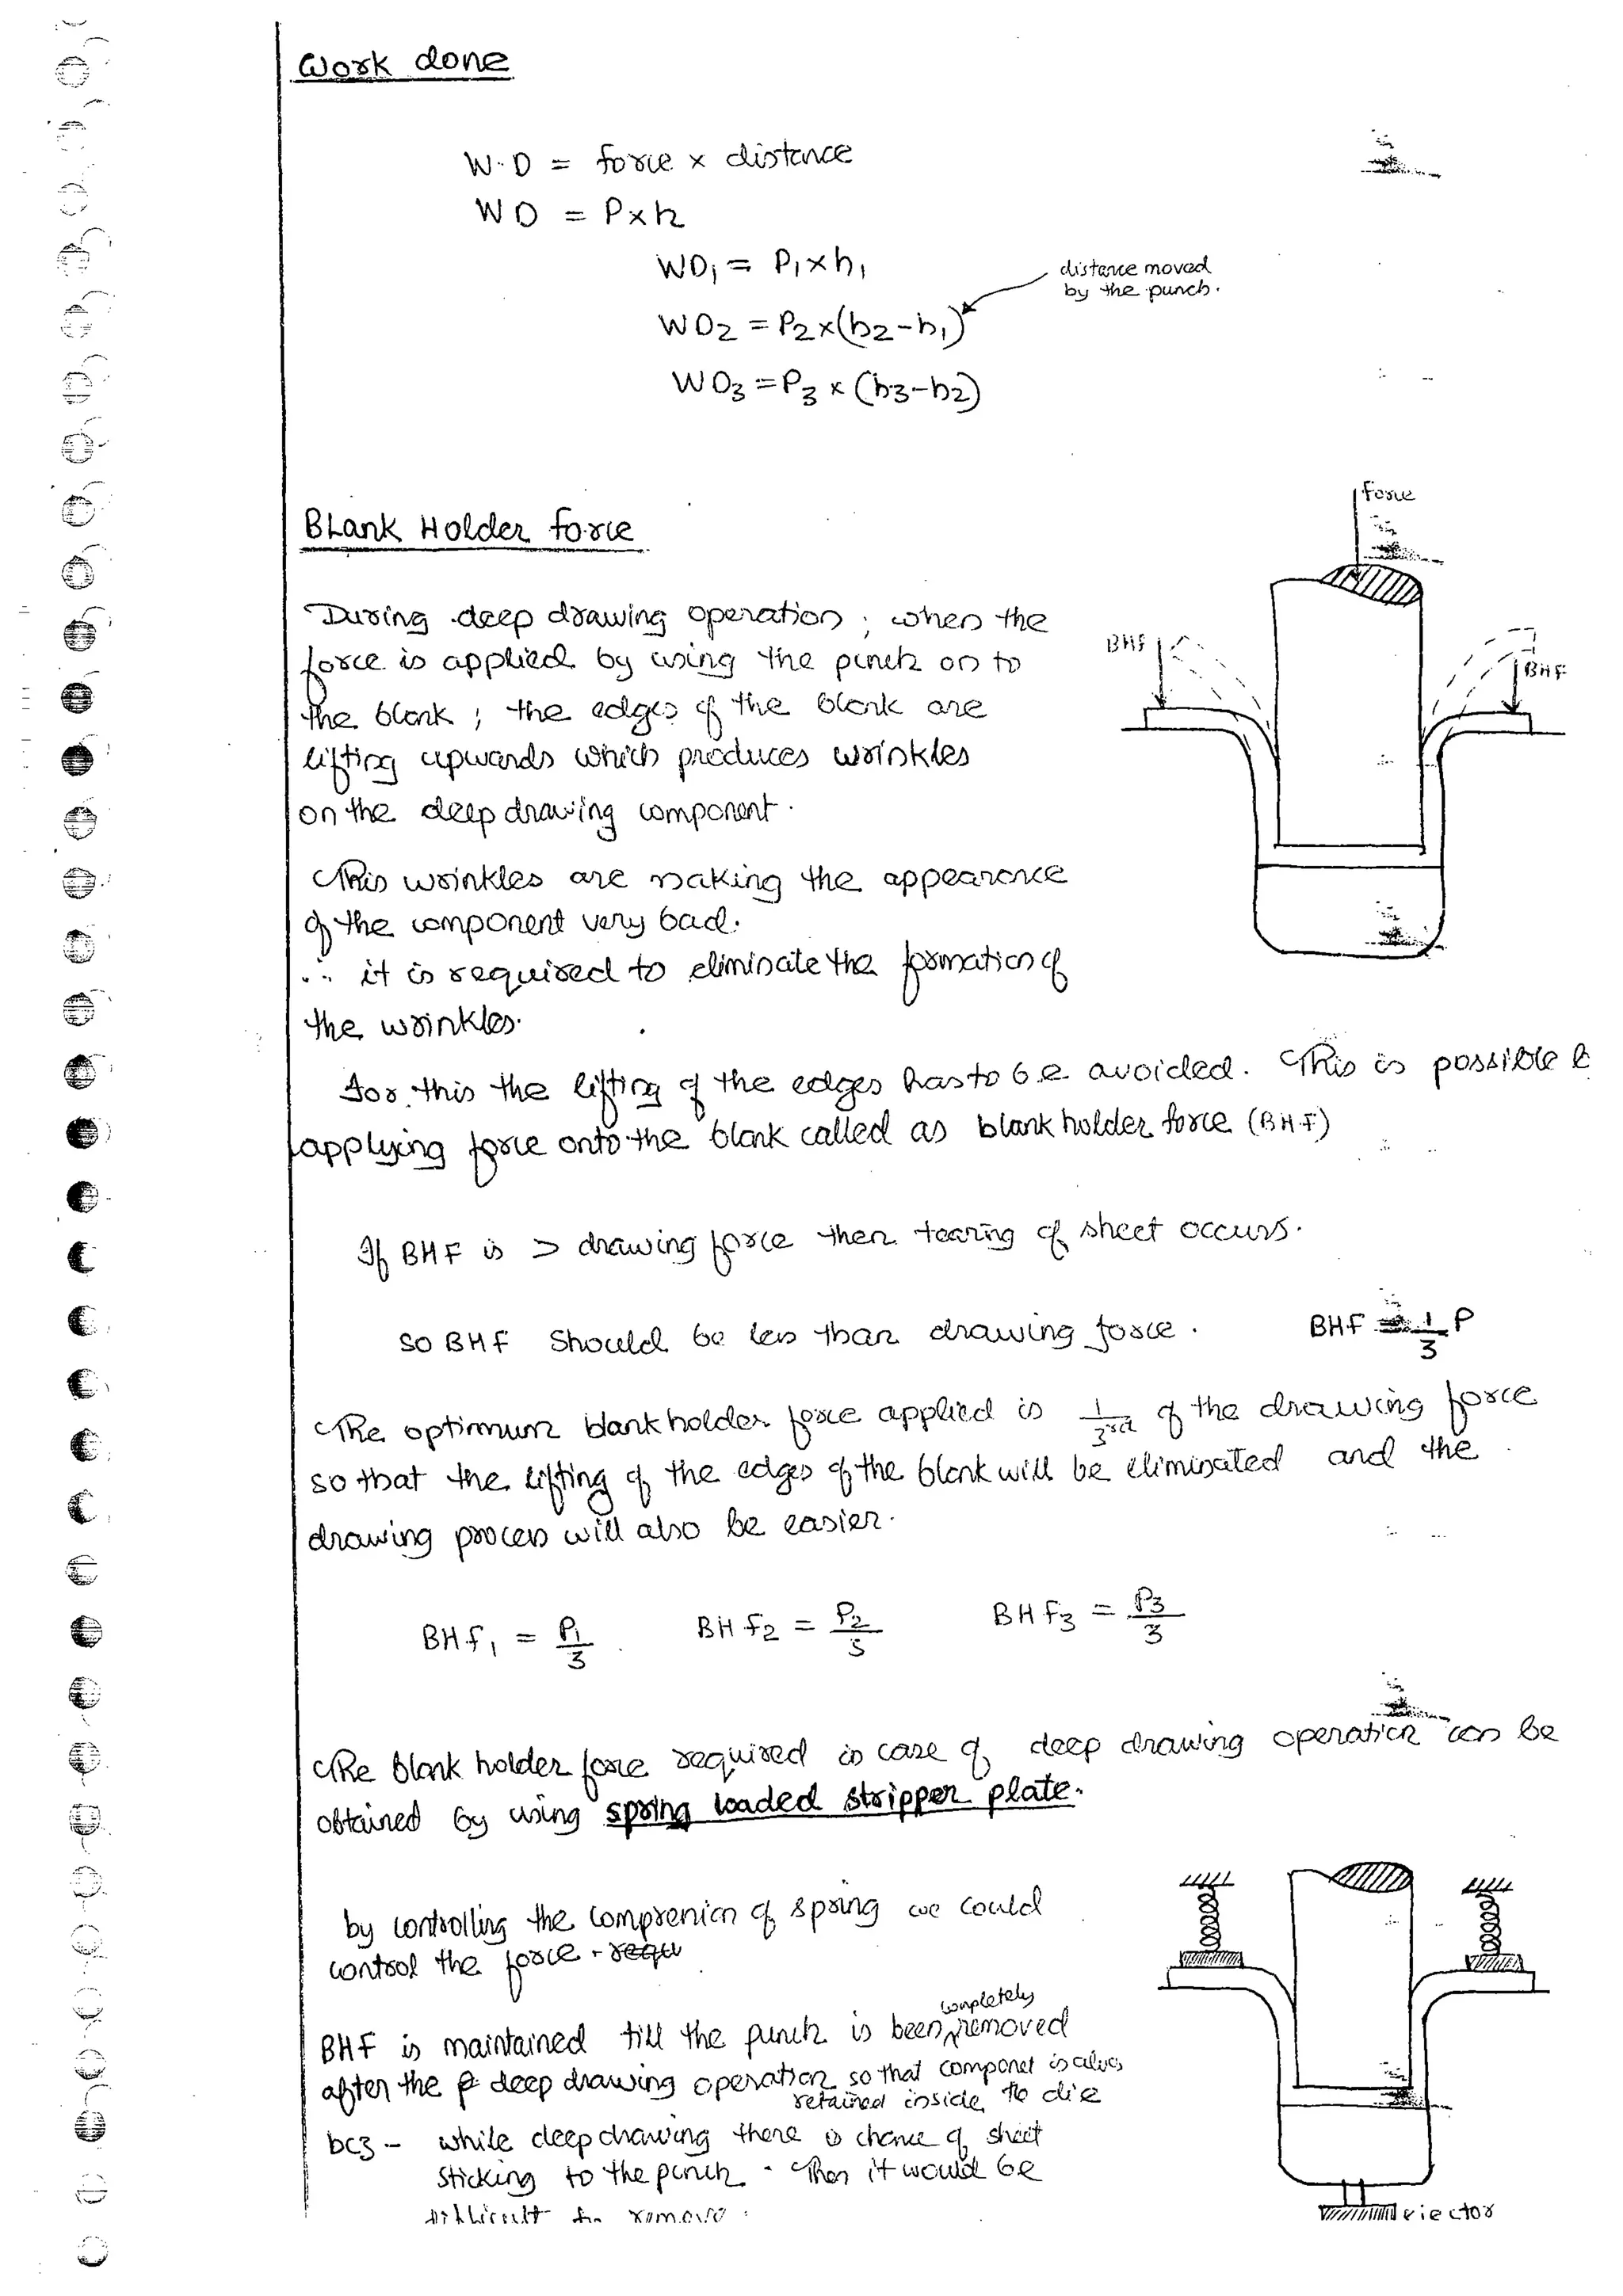 Work done
W.D = force x distance
WD = P x h
WD1 = P1 x h1
distance moved
by the punch.
WD2 = P2 x (h2-h1)
WD3 = P3 x (h3-h2)
force
Blank Holder force
During deep drawing operation; when the
force is applied by using the punch on to
the blank; the edges of the blank are
lifting upwards which produces wrinkles
on the deep drawing component.
BHF
BHF
This wrinkles are making the appearance
of the component very bad.
∴ it is required to eliminate the formation of
the wrinkles.
For this the lifting of the edges has to be avoided. This is possible
applying force onto the blank called as blank holder force (BHF)
If BHF is > drawing force then tearing of sheet occurs.
So BHF should be less than drawing force. BHF 1/3 P
The optimum blank holder force applied is 1/3rd of the drawing force
so that the lifting of the edges of the blank will be eliminated and the
drawing process will also be easier.
BHF1 = P1/3 BHF2 = P2/3 BHF3 = P3/3
The blank holder force required in case of deep drawing operation can be
obtained by using spring loaded stripper plate.
by controlling the compression of spring we could
control the force. requ
BHF is maintained till the punch is been completely removed
after the deep drawing operation so that component is
retained inside the die
bcz - while deep drawing there is chance of sheet
sticking to the punch. Then it would be
difficult to remove.
ejector